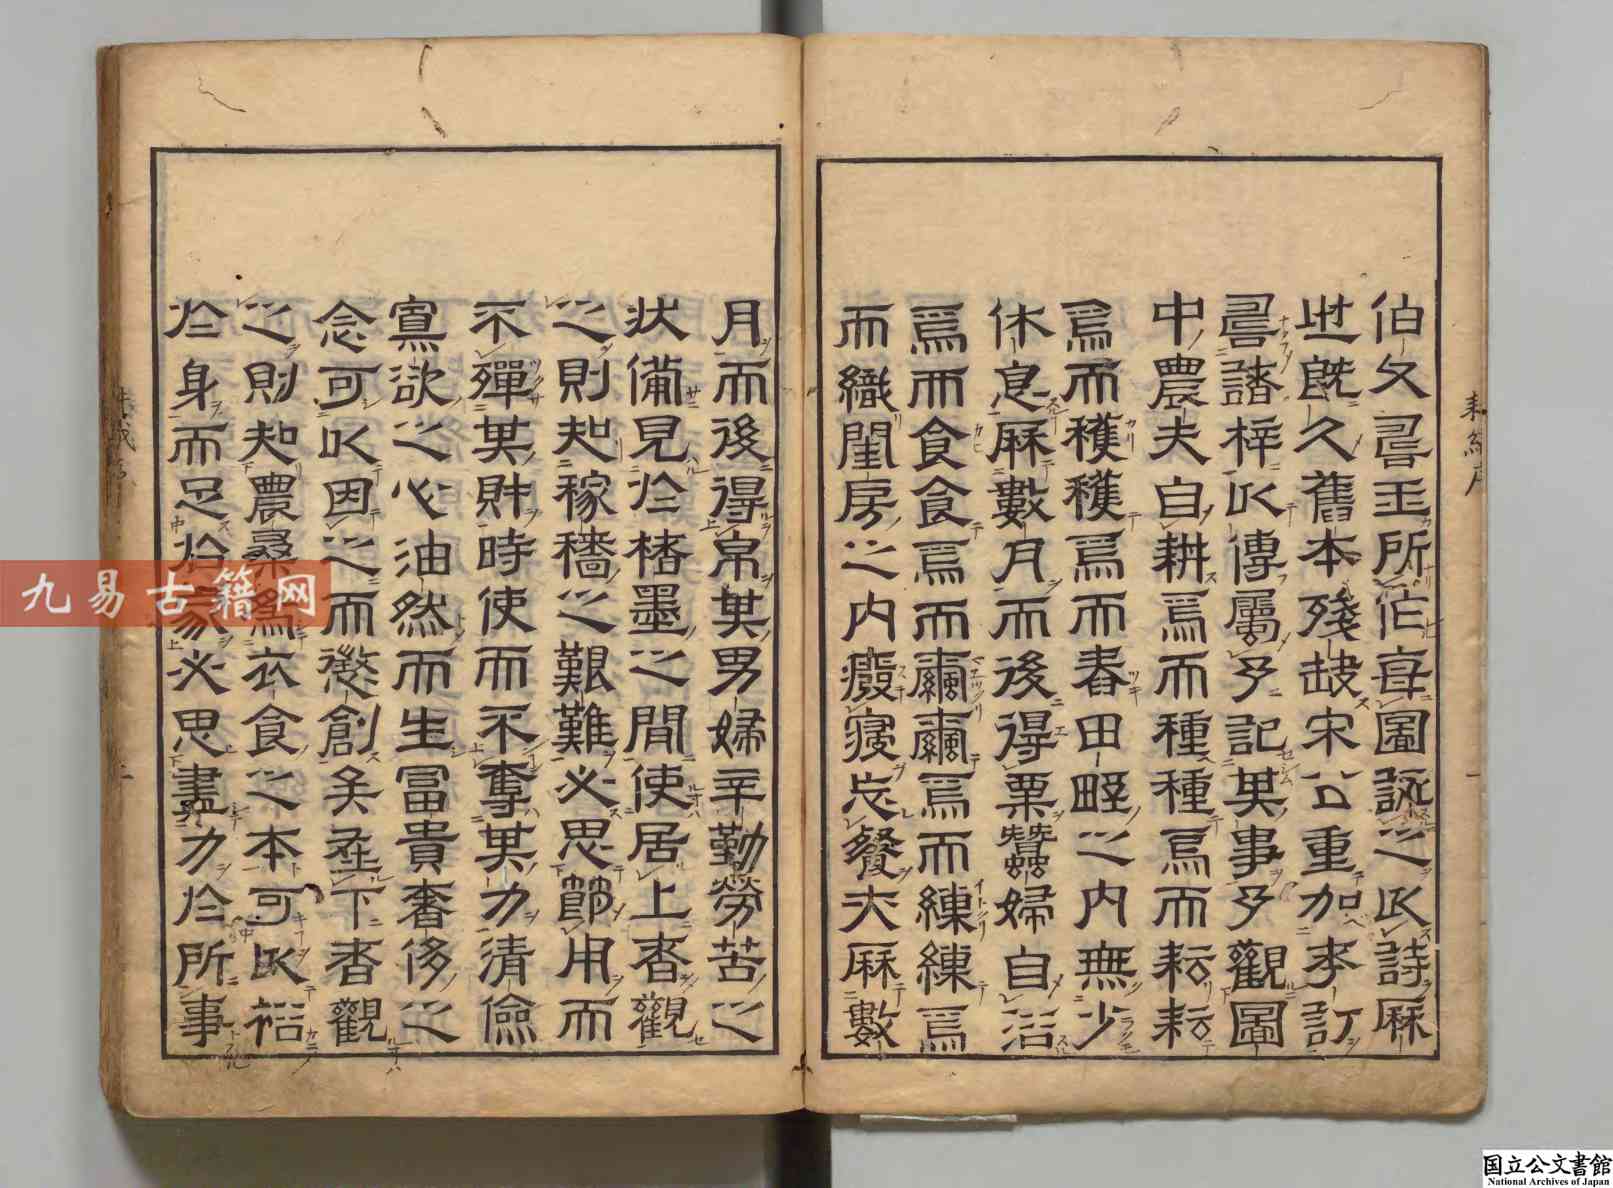 伯父壽玉所作每圖詠之以詩厤
世既久舊本殘缺宋公重加考訂
壽諸梓以傳屬予記其事予觀圖
中農夫自耕焉而種種焉而耘耘
焉而穫穫焉而舂田畯之内無少
休息厤數月而後得粟蠶婦自浴
焉而食食焉而繭繭焉而練練焉
而織閨房之内癈寢忘餐夫厤數
月而後得帛其男婦辛勤勞苦之
狀備見於楮墨之間使居上者觀
之則知稼穡之艱難必思節用而
不殫其財時使而不奪其力清儉
寡欲之心油然而生富貴奢侈之
念可以因之而懲創矣在下者觀
之則知農桑為衣食之本可以裕
於身而足於家必思盡力於所事
耕織序
九易古籍网
国立公文書館
National Archives of Japan